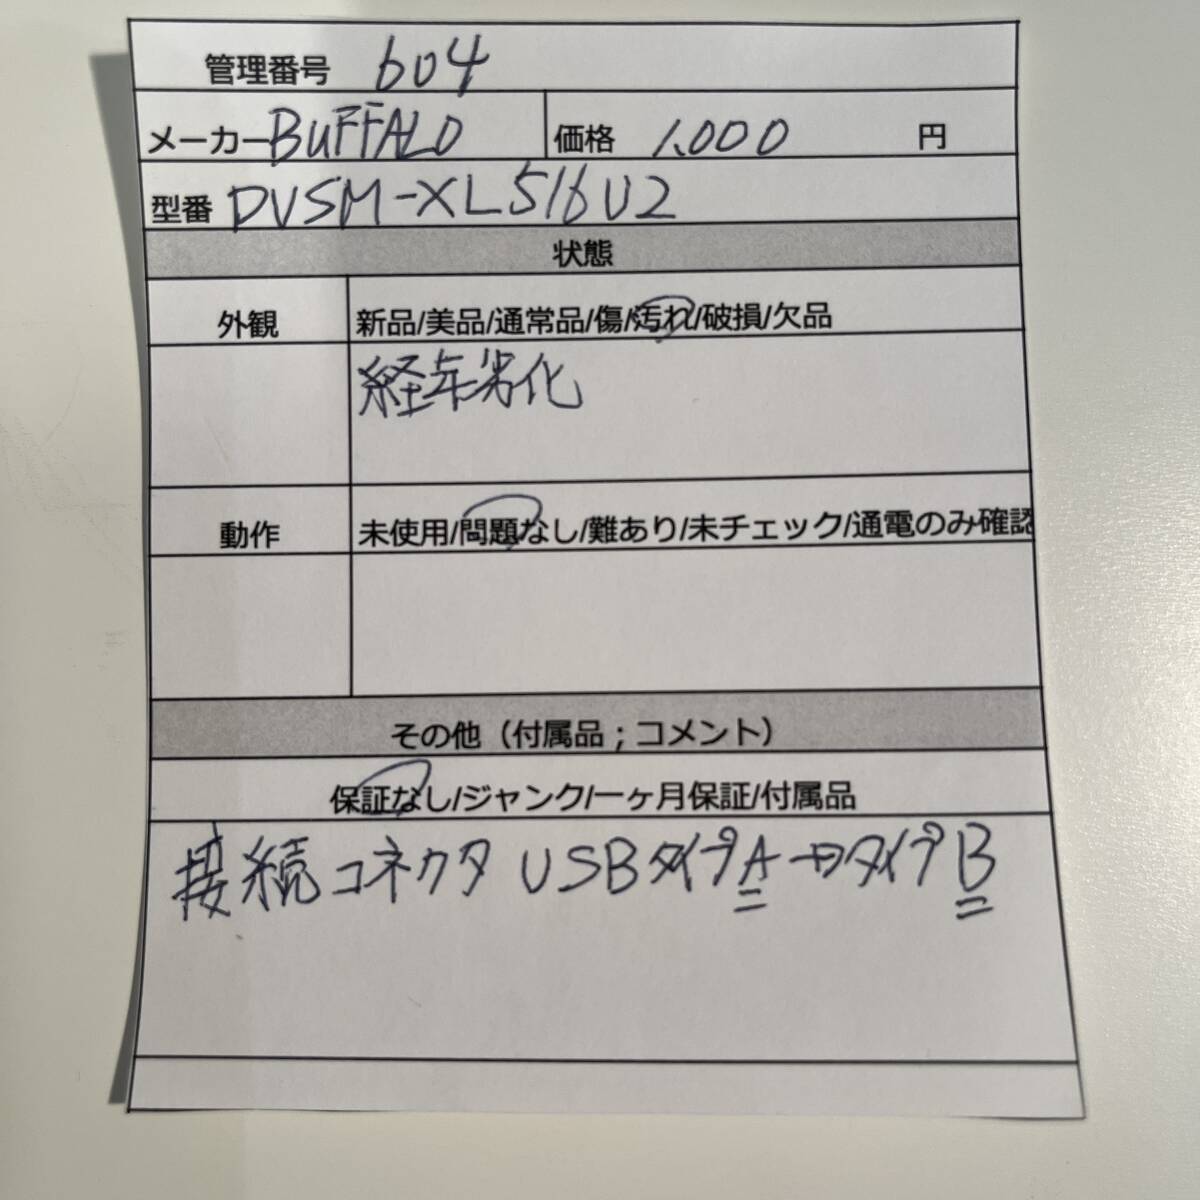 管理番号 604
メーカーBUFFALO 価格 1,000 円
型番 DVSM-XL516U2
状態
外観 新品/美品/通常品/傷/汚れ/破損/欠品
経年劣化
動作 未使用/問題なし/難あり/未チェック/通電のみ確認
その他（付属品；コメント）
保証なし/ジャンク/一ヶ月保証/付属品
接続コネクタ USBタイプA→タイプB